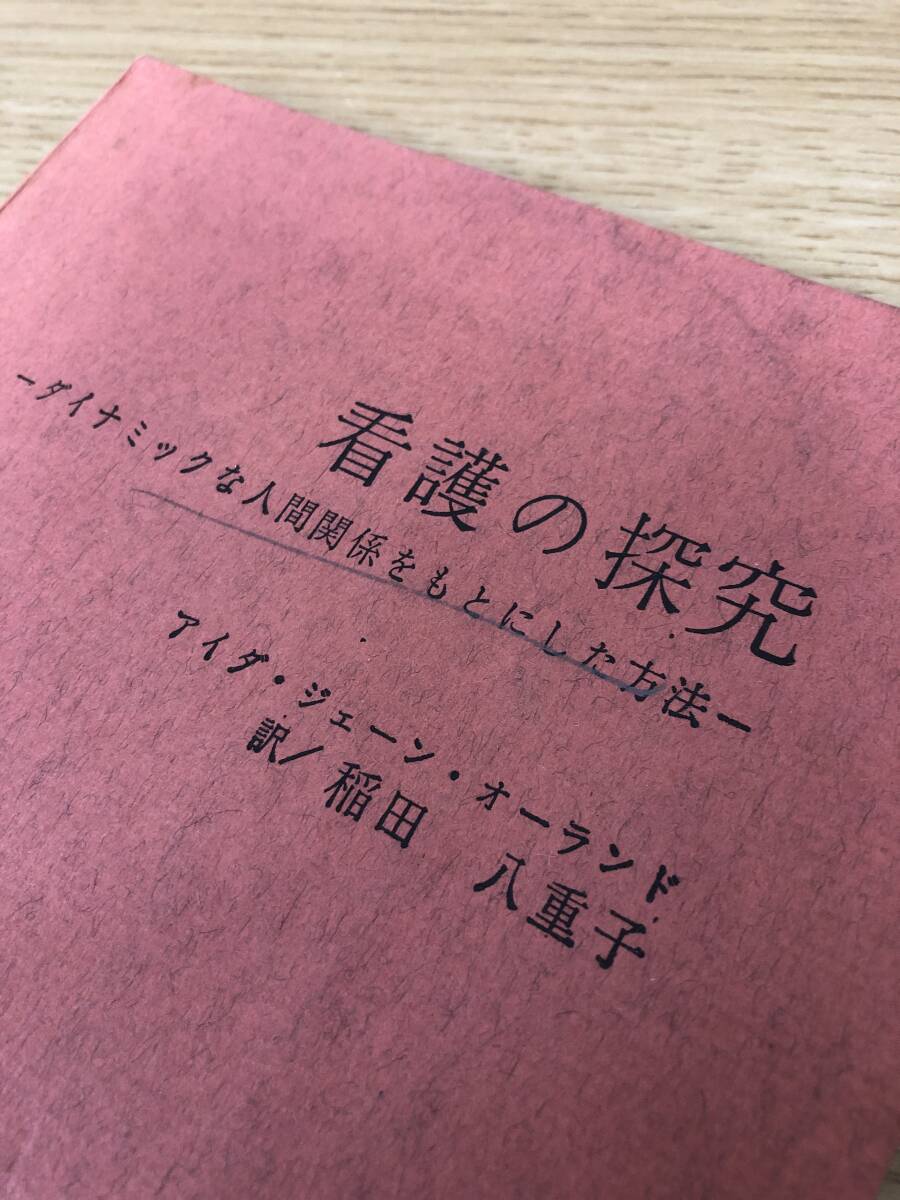 看護の探究
ーダイナミックな人間関係をもとにした方法ー
アイダ・ジェーン・オーランド
訳/稲田 八重子